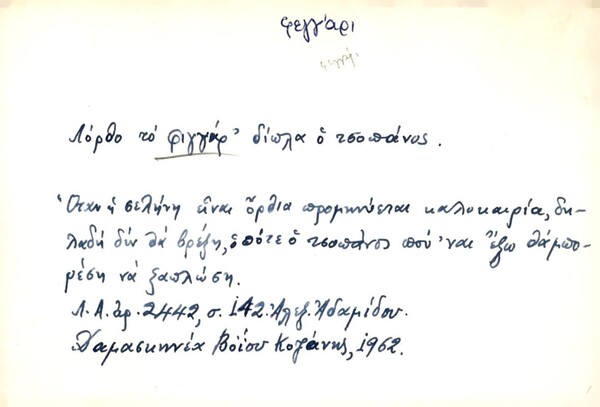 φεγγάρι
φεγγάρ.
Λόρθο τό φιγγάρ' δίπλα ὁ τσοπάνος.
Ὅταν ἡ σελήνη εἶναι ὄρθια προμηνύεται καλοκαιρία, δη-
λαδή δέν θά βρέξῃ, ὁπότε ὁ τσοπάνος πού 'ναι ἔξω θά μπο-
ρέσῃ νά ξαπλώσῃ.
Λ.Α. ἀρ. 2442, σ. 142. Ἀλεξ. Ἀδαμίδου.
Δαμασκηνέα Βοΐου Κοζάνης, 1962.